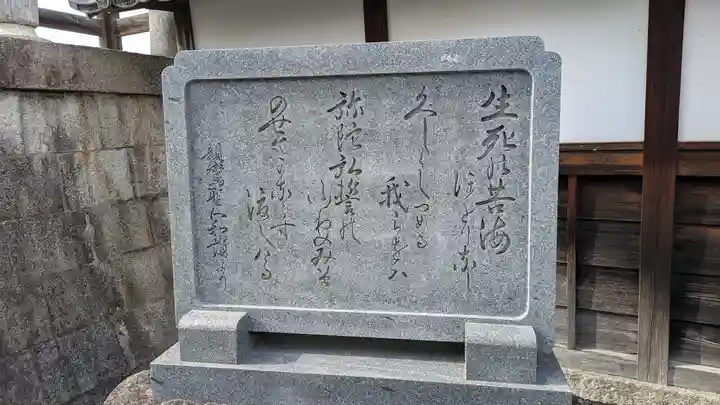 生死の苦海
ほとりなし
久しくしづめる
我らをば
弥陀弘誓の
ふねのみぞ
のせてかならず
渡しける
親鸞聖人和讃より